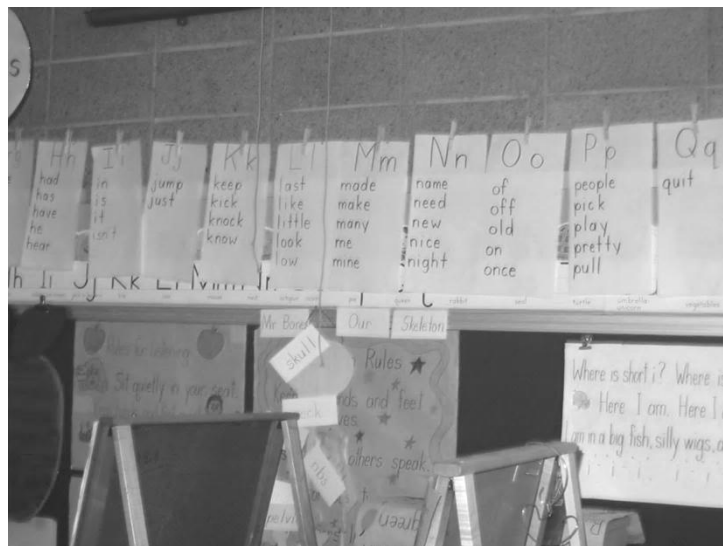 s
Hh
had
has
have
he
hear
Ii
in
is
it
isn't
Jj
jump
just
Kk
keep
kick
knock
know
Ll
last
like
little
look
low
Mm
made
make
many
me
mine
Nn
name
need
new
nice
night
Oo
of
off
old
on
once
Pp
people
pick
play
pretty
pull
Qq
quit
Ii Jj Kk Ll Mm
Mr Bones Our Skeleton
skull
ribs
Rules for listening
Sit quietly in your seat.
Rules
and feet
others speak.
green
Where is short i? Where is
Here I am. Here I
I am in a big fish, silly wigs,
i i i i i